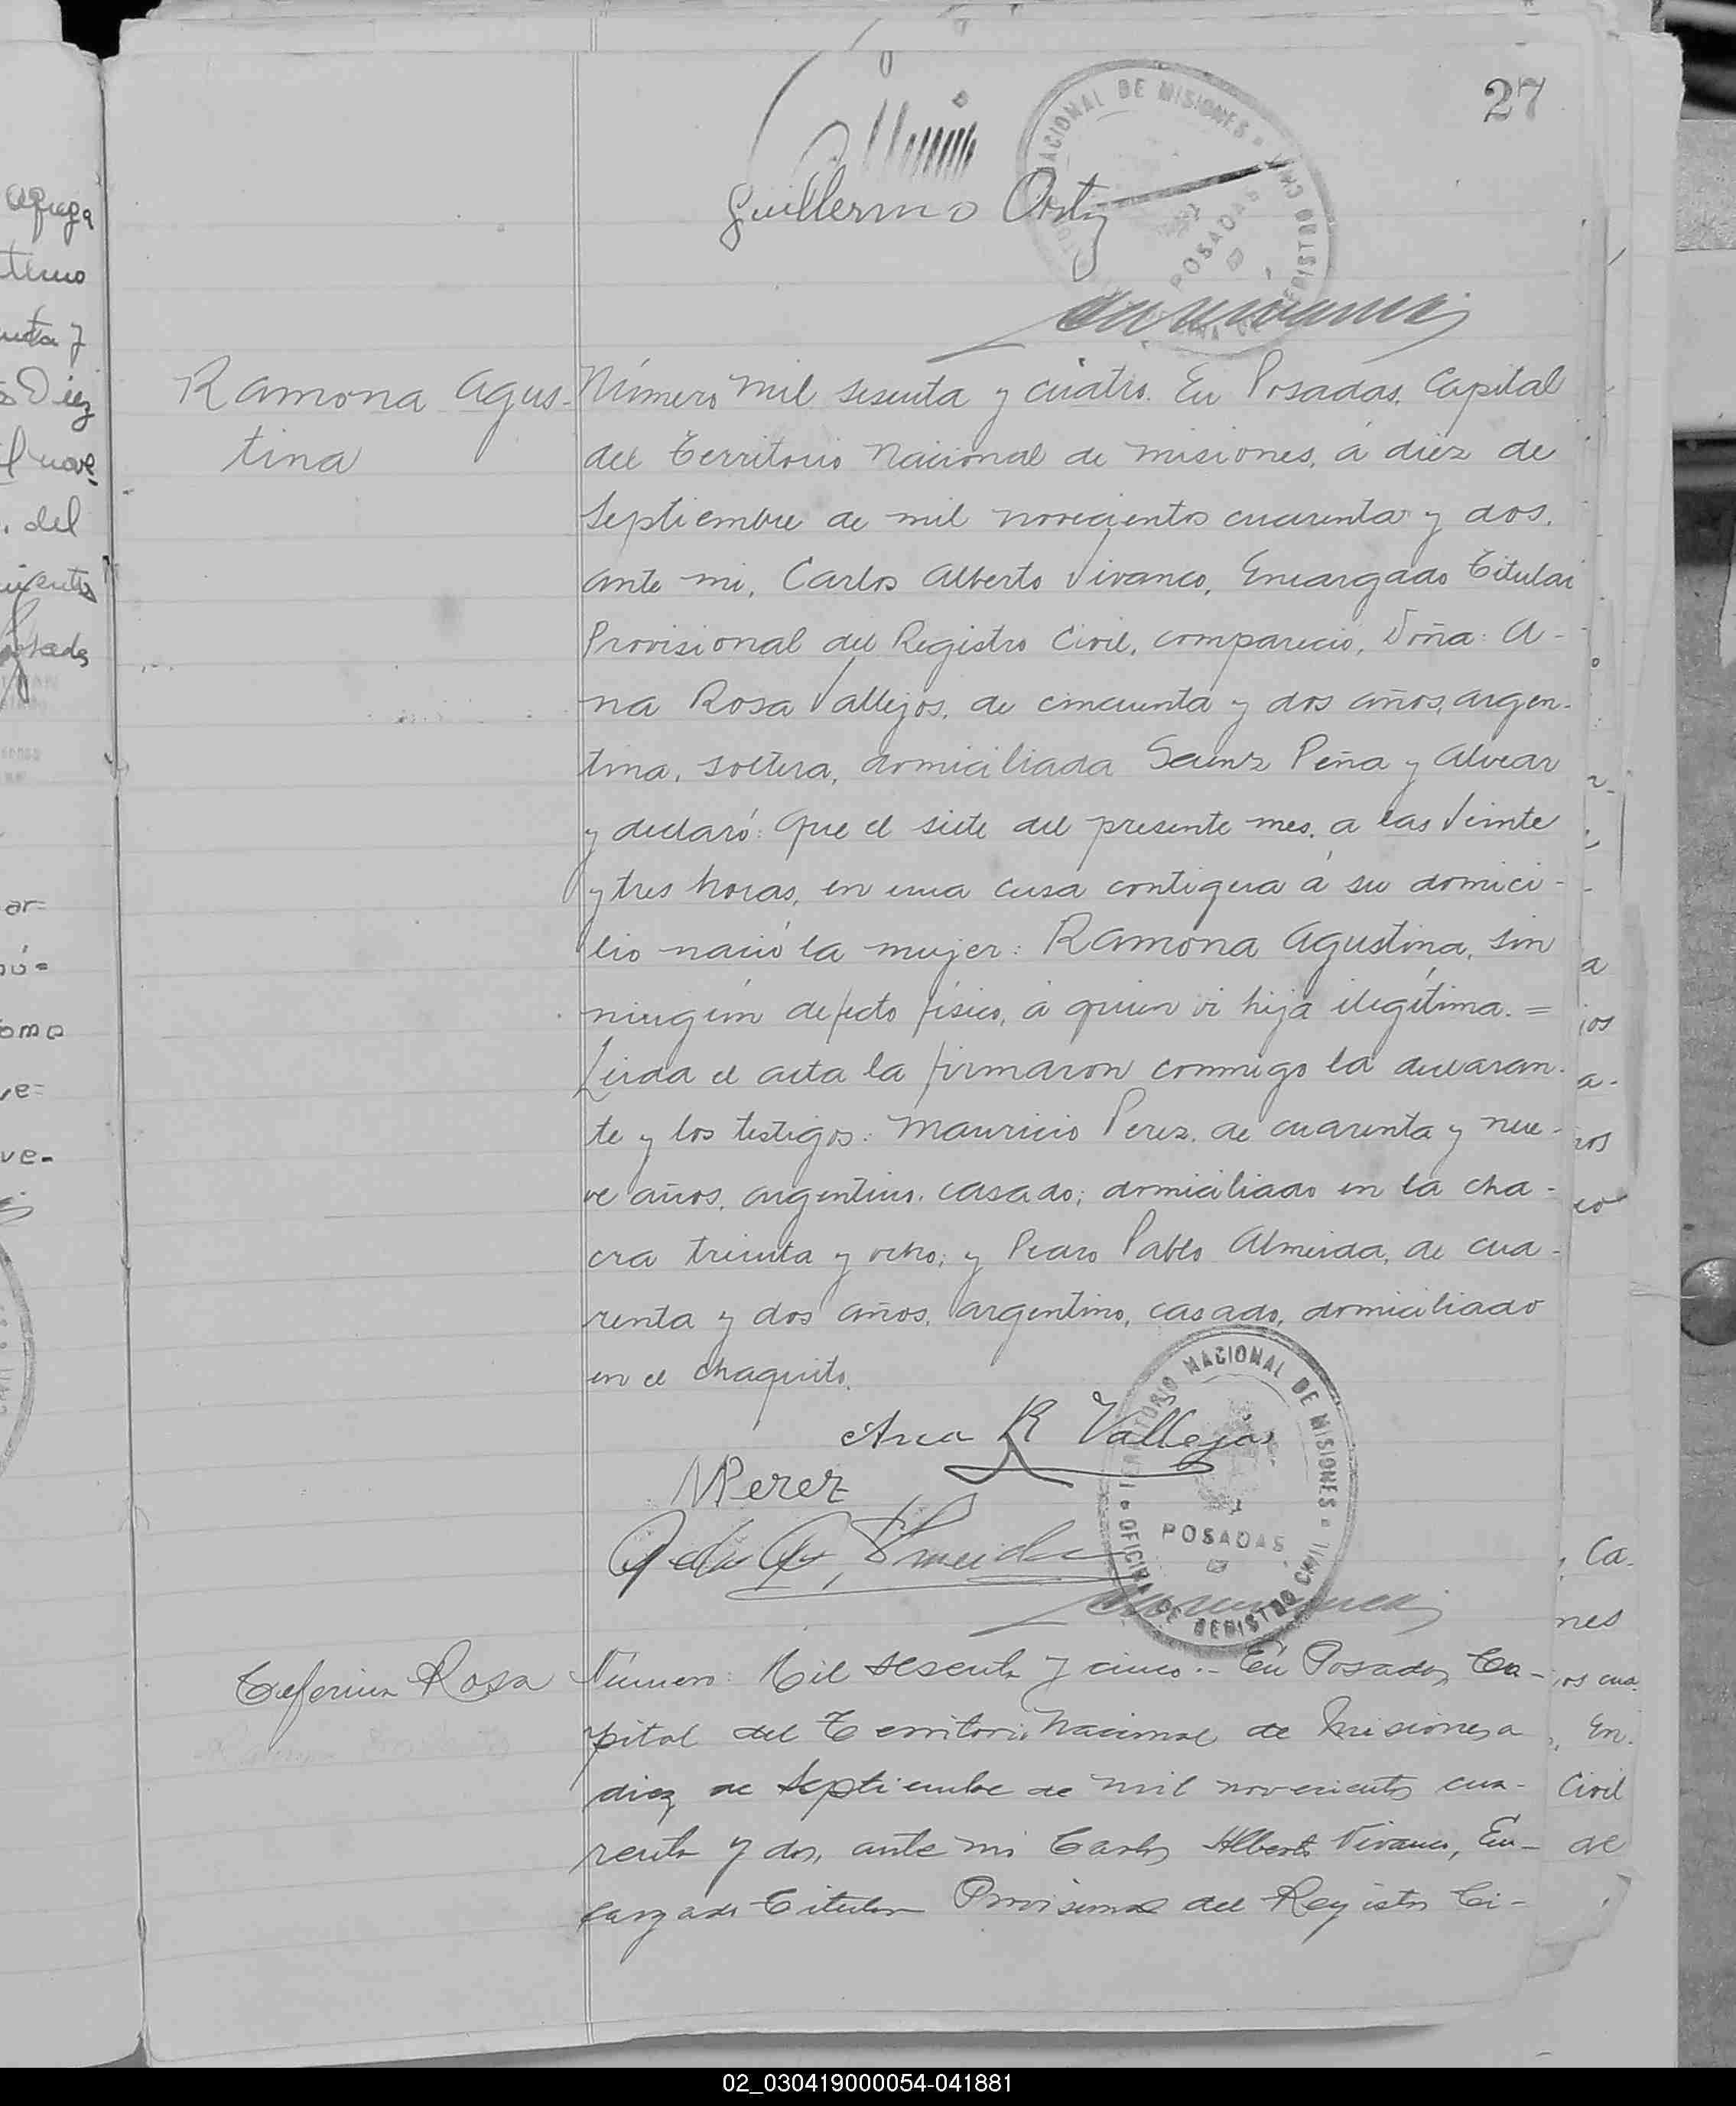 27
Guillermo Ortiz
NACIONAL DE MISIONES
POSADAS
Ramona Agus-
tina
Número mil sesenta y cuatro. En Posadas, Capital
del Territorio Nacional de Misiones, á diez de
Septiembre de mil novecientos cuarenta y dos,
ante mi, Carlos Alberto Vivanco, Encargado Titular
Provisional del Registro Civil, compareció, Doña: A-
na Rosa Vallejos, de cincuenta y dos años, argen-
tina, soltera, domiciliada Saenz Peña y Alvear
y declaró: Que el siete del presente mes, a las veinte
y tres horas, en una casa contigua á su domici-
lio nació la mujer: Ramona Agustina, sin
ningún defecto físico, á quien vi hija ilegítima. =
Leida el acta la firmaron conmigo la declaran-
te y los testigos: Mauricio Perez, de cuarenta y nue-
ve años, argentino, casado, domiciliado en la cha-
cra treinta y ocho; y Pedro Pablo Almeida, de cua-
renta y dos años, argentino, casado, domiciliado
en el chaquito.
Ana R Vallejos
MPerez
TERRITORIO NACIONAL DE MISIONES
POSADAS
OFICINA DE REGISTRO CIVIL
Ceferina Rosa
Número: Mil sesenta y cinco.- En Posadas, Ca-
pital del Territorio Nacional de Misiones, a
diez de Septiembre de mil novecientos cua-
renta y dos, ante mi Carlos Alberto Vivanco, En-
cargado Titular Provisional del Registro Ci-
02_030419000054-041881